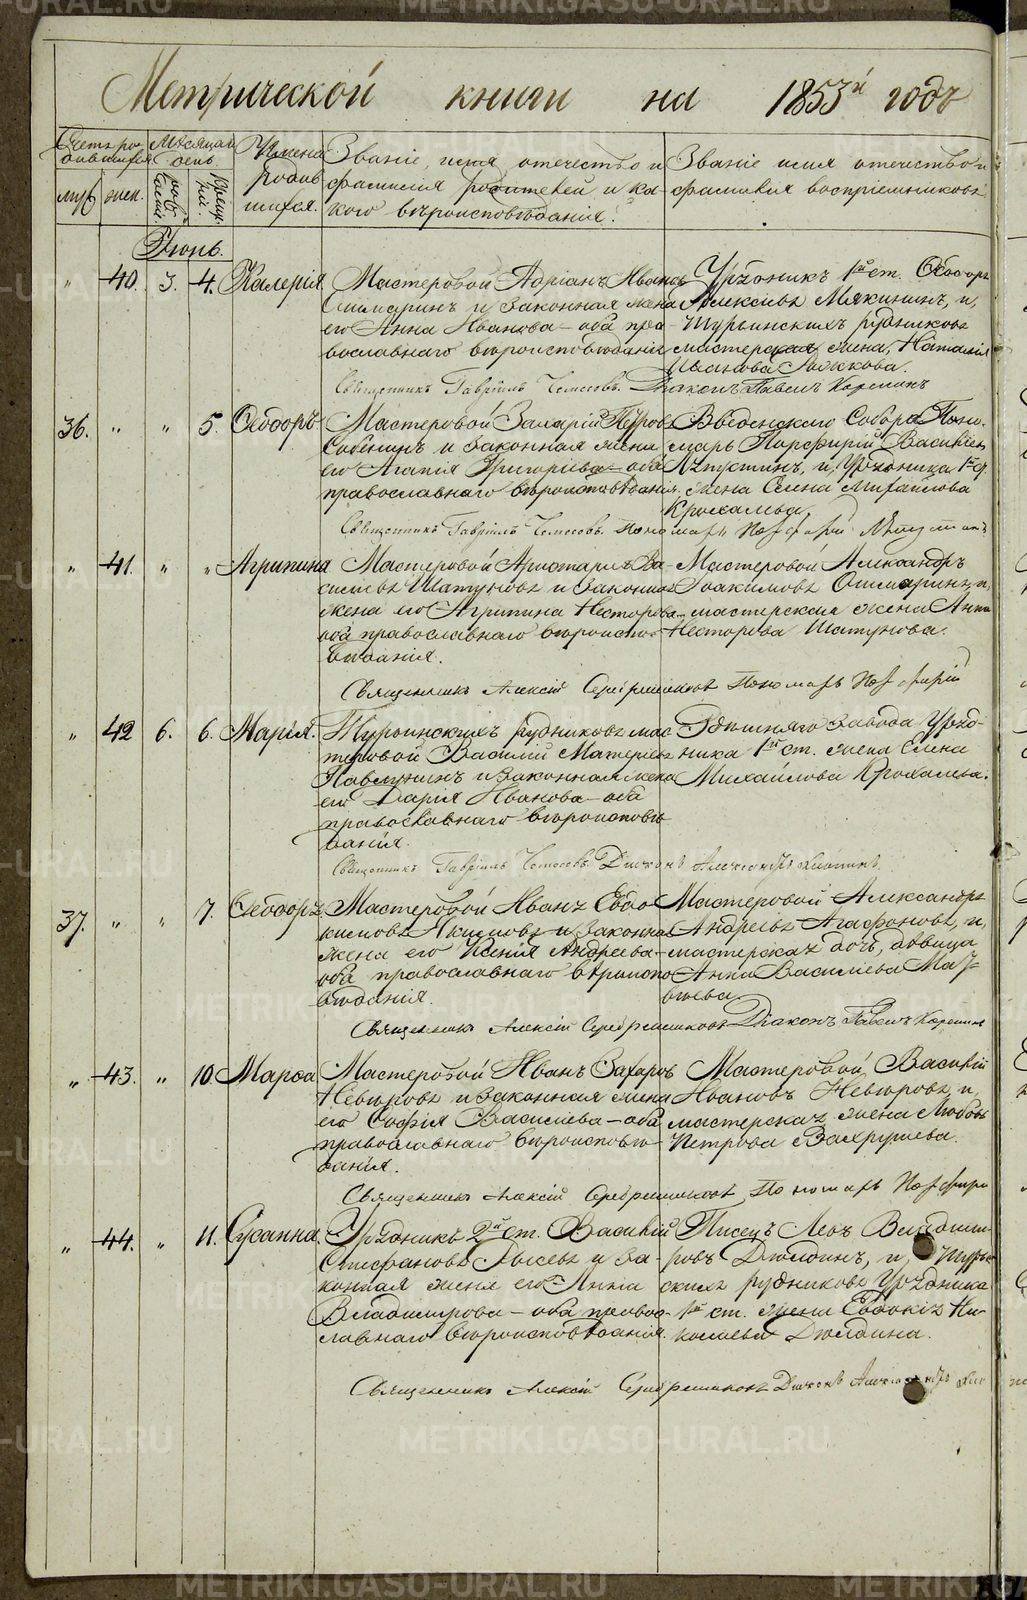 Метрической книги на 1853й годъ
Счетъ ро-
дившихся
Мѣсяцъ и
день
Имена
родив
шихся.
Званіе, имя отечество и
фамилія родителей и ка-
кого вѣроисповѣданія.
Званіе имя отечество и
фамилія воспріемниковъ
муж. жен.
Іюнь.
" 40. 3. 4. Калерія
Мастеровой Адріанъ Ивановъ
Ошмаринъ и законная жена
его Анна Иванова - оба пра-
вославнаго вѣроисповѣданія
Урядникъ 1й ст. Ѳеодоръ
Алексѣевъ Мякининъ, и,
Турьинскихъ рудниковъ
мастерская жена, Наталія
Иванова
Священникъ Гавріилъ Діаконъ Павелъ
36. " " 5. Ѳеодоръ
Мастеровой Захарій Петровъ
и законная жена
его Агапія Григорьева - оба
православнаго вѣроисповѣданія.
Введенскаго Собора Поно-
марь Порфирій Василіевъ
и, Урядника 1й ст.
жена Елена Михайлова
Крохалева,
Священникъ Гавріилъ Пономарь Порфирій
" 41. " " Агрипина
Мастеровой Аристархъ Ва
сильевъ Шатуновъ и законная
жена его Агрипина Несторова
оба православнаго вѣроиспо-
вѣданія.
Мастеровой Александръ
Іоакимовъ Ошмаринъ, и,
мастерская жена Анна
Несторова Шатунова.
Священникъ Алексій Серебренниковъ Пономарь Порфирій
" 42 6. 6. Марія.
Турьинскихъ рудниковъ мас
теровой Василій
и законная жена
его Дарія Иванова - оба
православнаго вѣроисповѣ
данія.
Здѣшняго завода Уряд-
ника 1й ст. жена Елена
Михайлова Крохалева.
Священникъ Гавріилъ Діаконъ Александръ
37. " " 7. Ѳеодоръ
Мастеровой Иванъ Евдо
кимовъ Акимовъ и законная
жена его Ксенія Андреева-
оба православнаго вѣроиспо
вѣданія.
Мастеровой Александръ
Андреевъ Агафоновъ, и,
мастерская дочь, дѣвица
Анна Василіева
Священникъ Алексій Серебренниковъ Діаконъ Павелъ
" 43. " 10. Марѳа
Мастеровой Иванъ Захаровъ
Невѣровъ и законная жена
его Софія Василіева - оба
православнаго вѣроисповѣ-
данія.
Мастеровой, Василій
Ивановъ Невѣровъ, и,
мастерская жена Любовь
Петрова Вахрушева.
Священникъ Алексій Серебренниковъ Пономарь Порфирій
" 44. " 11. Сусанна.
Урядникъ 2й ст. Василій
Стефановъ Лысевъ и за-
конная жена его Анна
Владимірова - оба правос-
лавнаго вѣроисповѣданія.
Писецъ Левъ Владими-
ровъ Дюлдинъ, и, Турьин
скихъ рудниковъ Урядника
1й ст. жена Евдокія Ни-
колаева Дюлдина.
Священникъ Алексій Серебренниковъ Діаконъ Александръ
METRIKI.GASO-URAL.RU